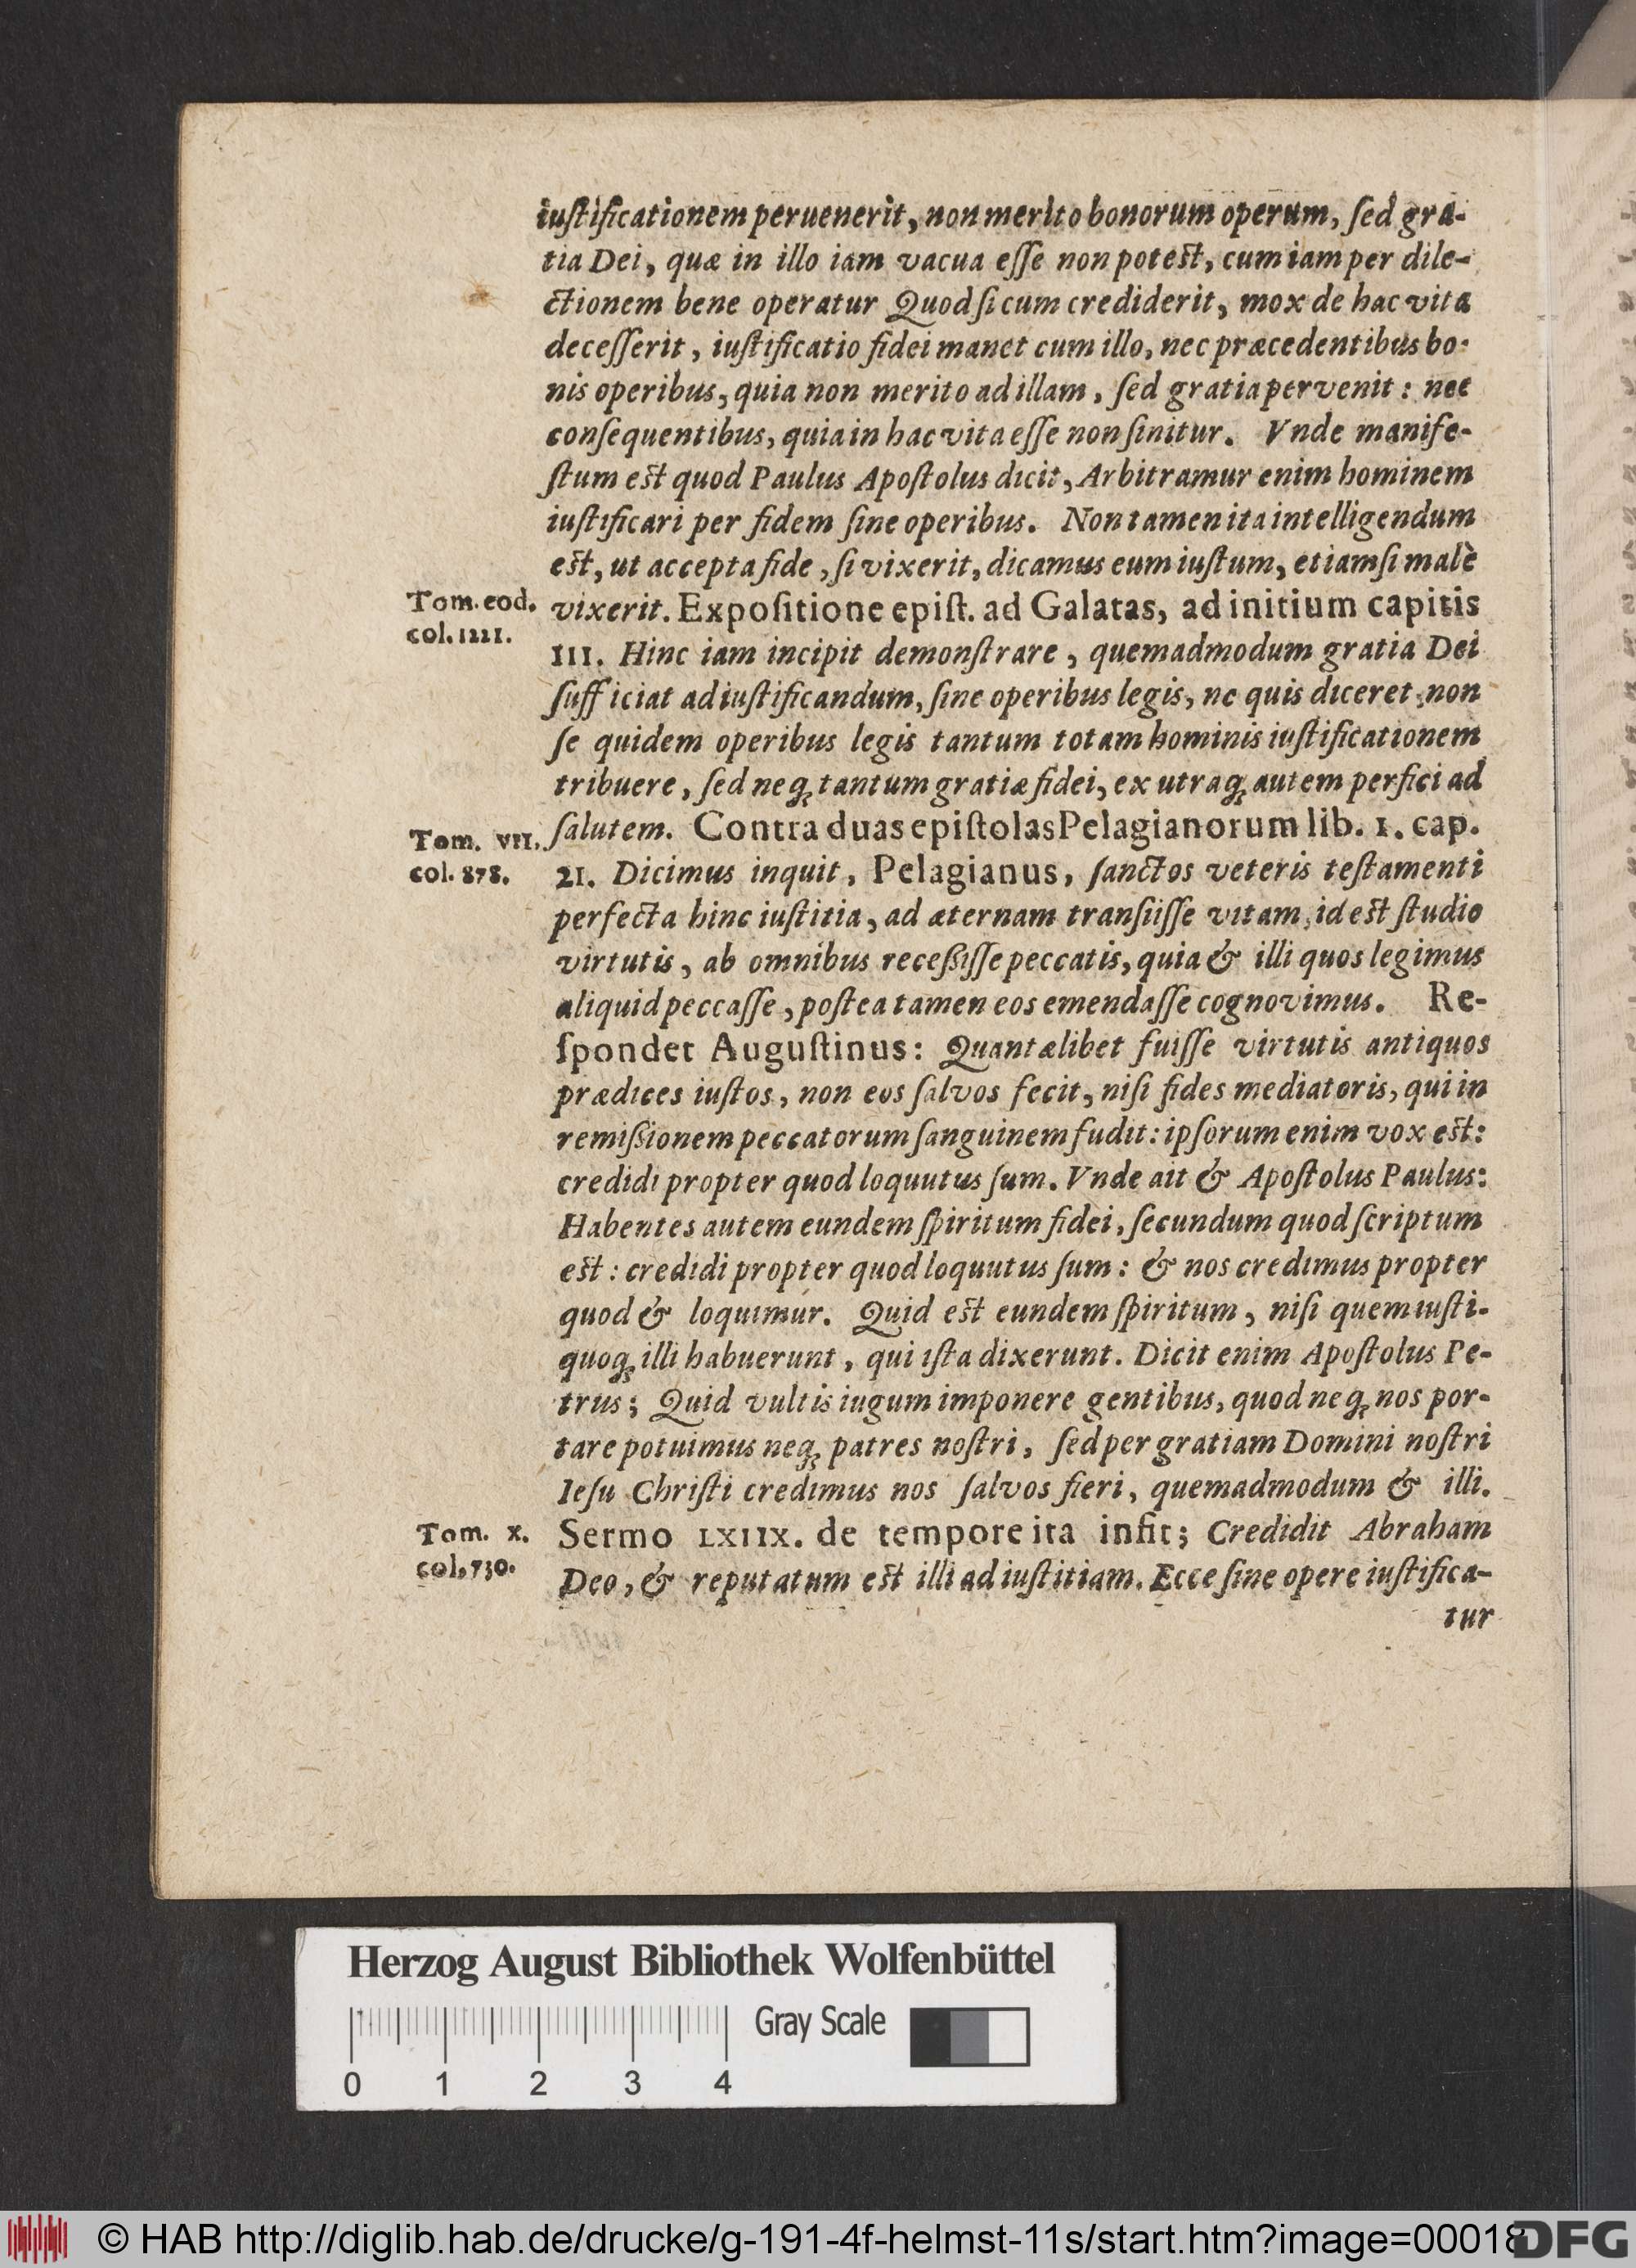 iuſtificationem peruenerit, non merito bonorum operum, ſed gra-
tia Dei, quæ in illo iam vacua eſſe non poteſt, cum iam per dile-
ctionem bene operatur Quod ſi cum crediderit, mox de hac vita
deceſſerit, iuſtificatio fidei manet cum illo, nec præcedentibus bo-
nis operibus, quia non merito ad illam, ſed gratia pervenit: nec
conſequentibus, quia in hac vita eſſe non ſinitur. Vnde manife-
ſtum eſt quod Paulus Apoſtolus dicit, Arbitramur enim hominem
iuſtificari per fidem ſine operibus. Non tamen ita intelligendum
eſt, ut accepta fide, ſi vixerit, dicamus eum iuſtum, etiamſi malè
Tom. eod.
col. 1221.
vixerit. Expoſitione epiſt. ad Galatas, ad initium capitis
III. Hinc iam incipit demonſtrare, quemadmodum gratia Dei
ſufficiat ad iuſtificandum, ſine operibus legis, ne quis diceret, non
ſe quidem operibus legis tantum totam hominis iuſtificationem
tribuere, ſed neq; tantum gratiæ fidei, ex utraq; autem perfici ad
Tom. VII.
col. 878.
ſalutem. Contra duas epiſtolas Pelagianorum lib. 1. cap.
21. Dicimus inquit, Pelagianus, ſanctos veteris teſtamenti
perfecta hinc iuſtitia, ad æternam tranſiiſſe vitam, id eſt ſtudio
virtutis, ab omnibus receßiſſe peccatis, quia & illi quos legimus
aliquid peccaſſe, poſtea tamen eos emendaſſe cognovimus. Re-
ſpondet Auguſtinus: Quantælibet fuiſſe virtutis antiquos
prædices iuſtos, non eos ſalvos fecit, niſi fides mediatoris, qui in
remißionem peccatorum ſanguinem fudit: ipſorum enim vox eſt:
credidi propter quod loquutus ſum. Vnde ait & Apoſtolus Paulus:
Habentes autem eundem ſpiritum fidei, ſecundum quod ſcriptum
eſt: credidi propter quod loquutus ſum: & nos credimus propter
quod & loquimur. Quid eſt eundem ſpiritum, niſi quem iuſti-
quoq; illi habuerunt, qui iſta dixerunt. Dicit enim Apoſtolus Pe-
trus; Quid vultis iugum imponere gentibus, quod neq; nos por-
tare potuimus neq; patres noſtri, ſed per gratiam Domini noſtri
Ieſu Chriſti credimus nos ſalvos fieri, quemadmodum & illi.
Tom. X.
col. 730.
Sermo LXIIX. de tempore ita infit; Credidit Abraham
Deo, & reputatum eſt illi ad iuſtitiam. Ecce ſine opere iuſtifica-
tur
Herzog August Bibliothek Wolfenbüttel
Gray Scale
0 1 2 3 4
© HAB http://diglib.hab.de/drucke/g-191-4f-helmst-11s/start.htm?image=00018
DFG